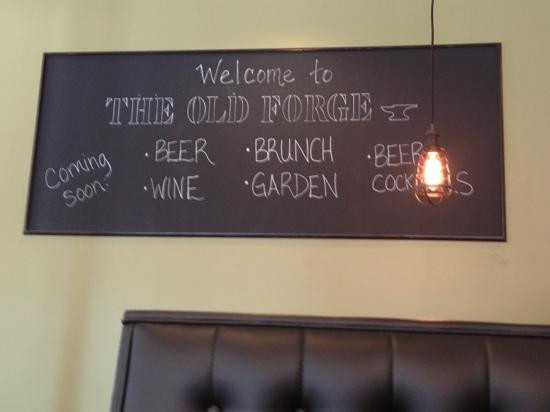 Welcome to
THE OLD FORGE
Coming soon:
· BEER
· WINE
· BRUNCH
· GARDEN
· BEER